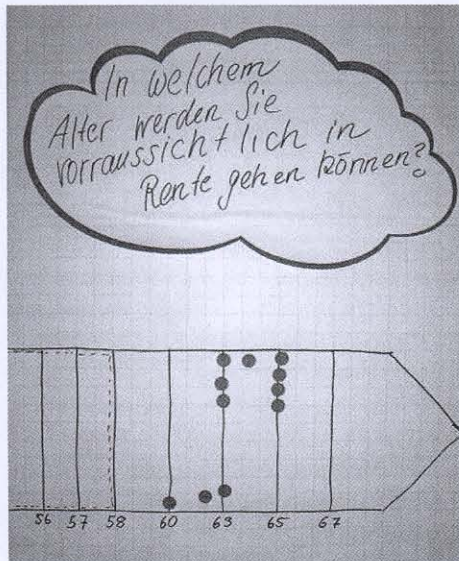 In welchem
Alter werden Sie
vorraussichtlich in
Rente gehen können?
56 57 58 60 63 65 67